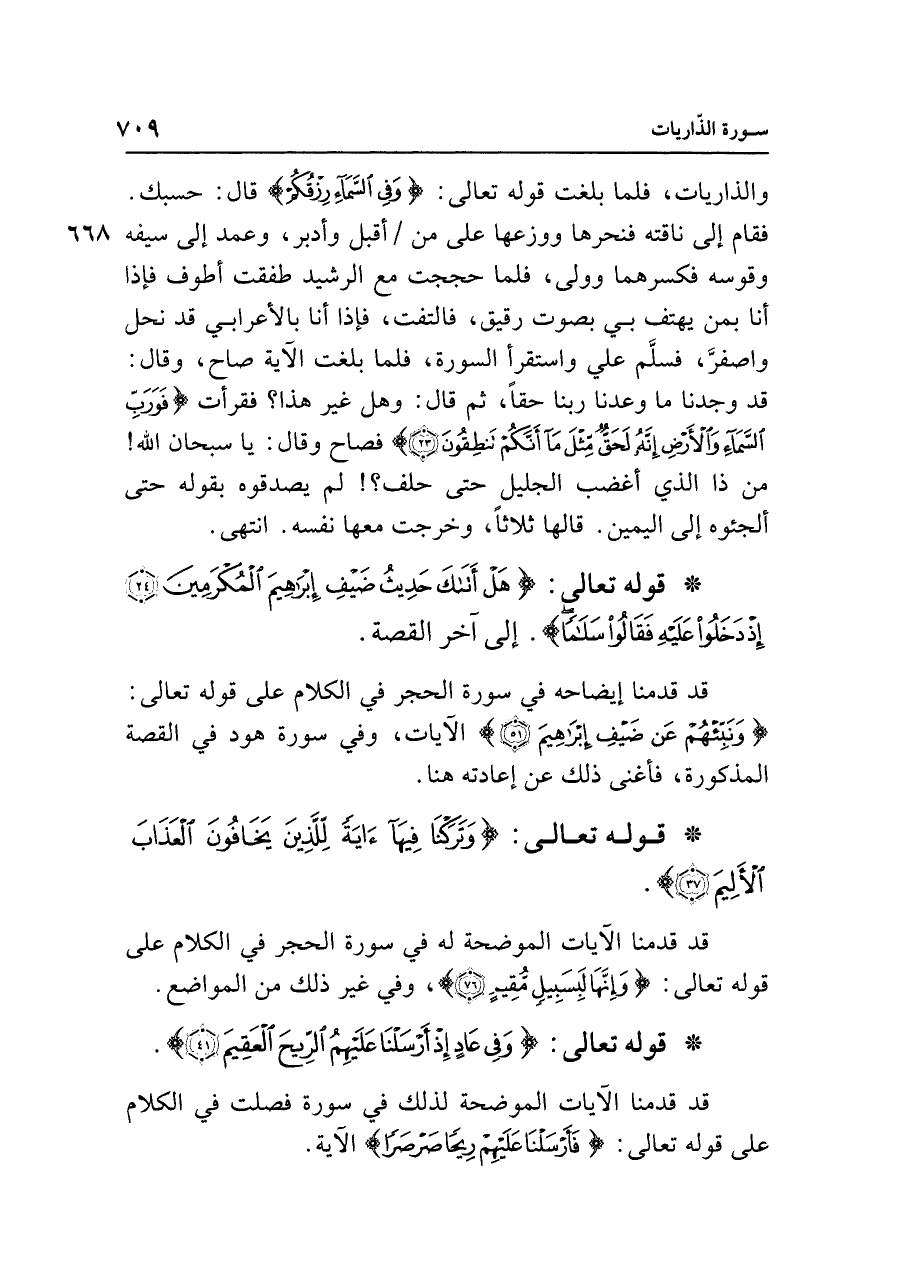 سـورة الذّاريات ٧٠٩
والذاريات، فلما بلغت قوله تعالى: ﴿وَفِي ٱلسَّمَآءِ رِزۡقُكُمۡ﴾ قال: حسبك.
فقام إلى ناقته فنحرها ووزعها على من / أقبل وأدبر، وعمد إلى سيفه ٦٦٨
وقوسه فكسرهما وولى، فلما حججت مع الرشيد طفقت أطوف فإذا
أنا بمن يهتف بـي بصوت رقيق، فالتفت، فإذا أنا بالأعرابـي قد نحل
واصفرَّ، فسلَّم علي واستقرأ السورة، فلما بلغت الآية صاح، وقال:
قد وجدنا ما وعدنا ربنا حقاً، ثم قال: وهل غير هذا؟ فقرأت ﴿فَوَرَبِّ
ٱلسَّمَآءِ وَٱلۡأَرۡضِ إِنَّهُۥ لَحَقّٞ مِّثۡلَ مَآ أَنَّكُمۡ تَنطِقُونَ ٢٣﴾ فصاح وقال: يا سبحان الله!
من ذا الذي أغضب الجليل حتى حلف؟! لم يصدقوه بقوله حتى
ألجئوه إلى اليمين. قالها ثلاثاً، وخرجت معها نفسه. انتهى.
* قوله تعالى: ﴿هَلۡ أَتَىٰكَ حَدِيثُ ضَيۡفِ إِبۡرَٰهِيمَ ٱلۡمُكۡرَمِينَ ٢٤
إِذۡ دَخَلُواْ عَلَيۡهِ فَقَالُواْ سَلَٰمٗاۖ﴾. إلى آخر القصة.
قد قدمنا إيضاحه في سورة الحجر في الكلام على قوله تعالى:
﴿وَنَبِّئۡهُمۡ عَن ضَيۡفِ إِبۡرَٰهِيمَ ٥١﴾ الآيات، وفي سورة هود في القصة
المذكورة، فأغنى ذلك عن إعادته هنا.
* قـولـه تعـالـى: ﴿وَتَرَكۡنَا فِيهَآ ءَايَةٗ لِّلَّذِينَ يَخَافُونَ ٱلۡعَذَابَ
ٱلۡأَلِيمَ ٣٧﴾.
قد قدمنا الآيات الموضحة له في سورة الحجر في الكلام على
قوله تعالى: ﴿وَإِنَّهَا لَبِسَبِيلٖ مُّقِيمٍ ٧٦﴾، وفي غير ذلك من المواضع.
* قوله تعالى: ﴿وَفِي عَادٍ إِذۡ أَرۡسَلۡنَا عَلَيۡهِمُ ٱلرِّيحَ ٱلۡعَقِيمَ ٤١﴾.
قد قدمنا الآيات الموضحة لذلك في سورة فصلت في الكلام
على قوله تعالى: ﴿فَأَرۡسَلۡنَا عَلَيۡهِمۡ رِيحٗا صَرۡصَرٗا﴾ الآية.